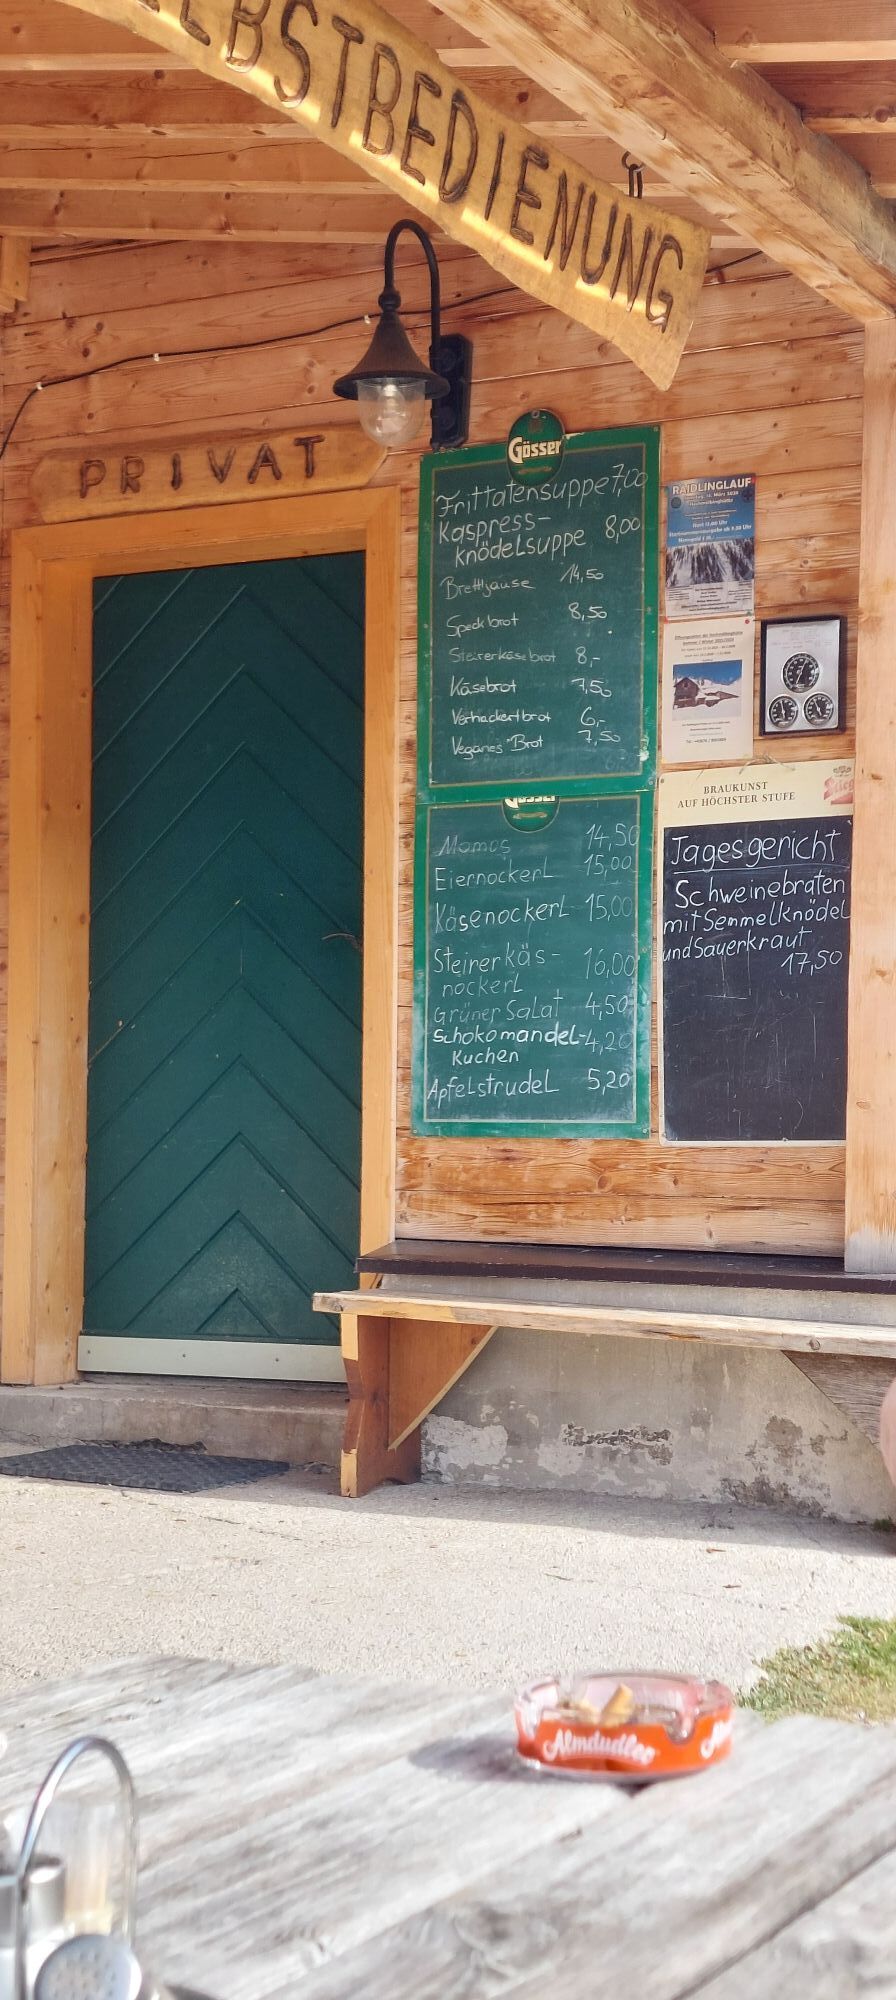 LBSTBEDIENUNG
PRIVAT
Gösser
Frittatensuppe 7,00
Kaspress-
knödelsuppe 8,00
Brettljause 14,50
Speckbrot 8,50
Steirerkäsebrot 8,-
Käsebrot 7,50
Verhackertbrot 6,-
Veganes Brot 7,50
Gösser
Momos 14,50
Eiernockerl 15,00
Käsenockerl 15,00
Steirerkäs- 16,00
nockerl
Grüner Salat 4,50
Schokomandel- 4,20
Kuchen
Apfelstrudel 5,20
RAIDLINGLAUF
BRAUKUNST
AUF HÖCHSTER STUFE
Tagesgericht
Schweinebraten
mit Semmelknödel
und Sauerkraut
17,50
Almdudler